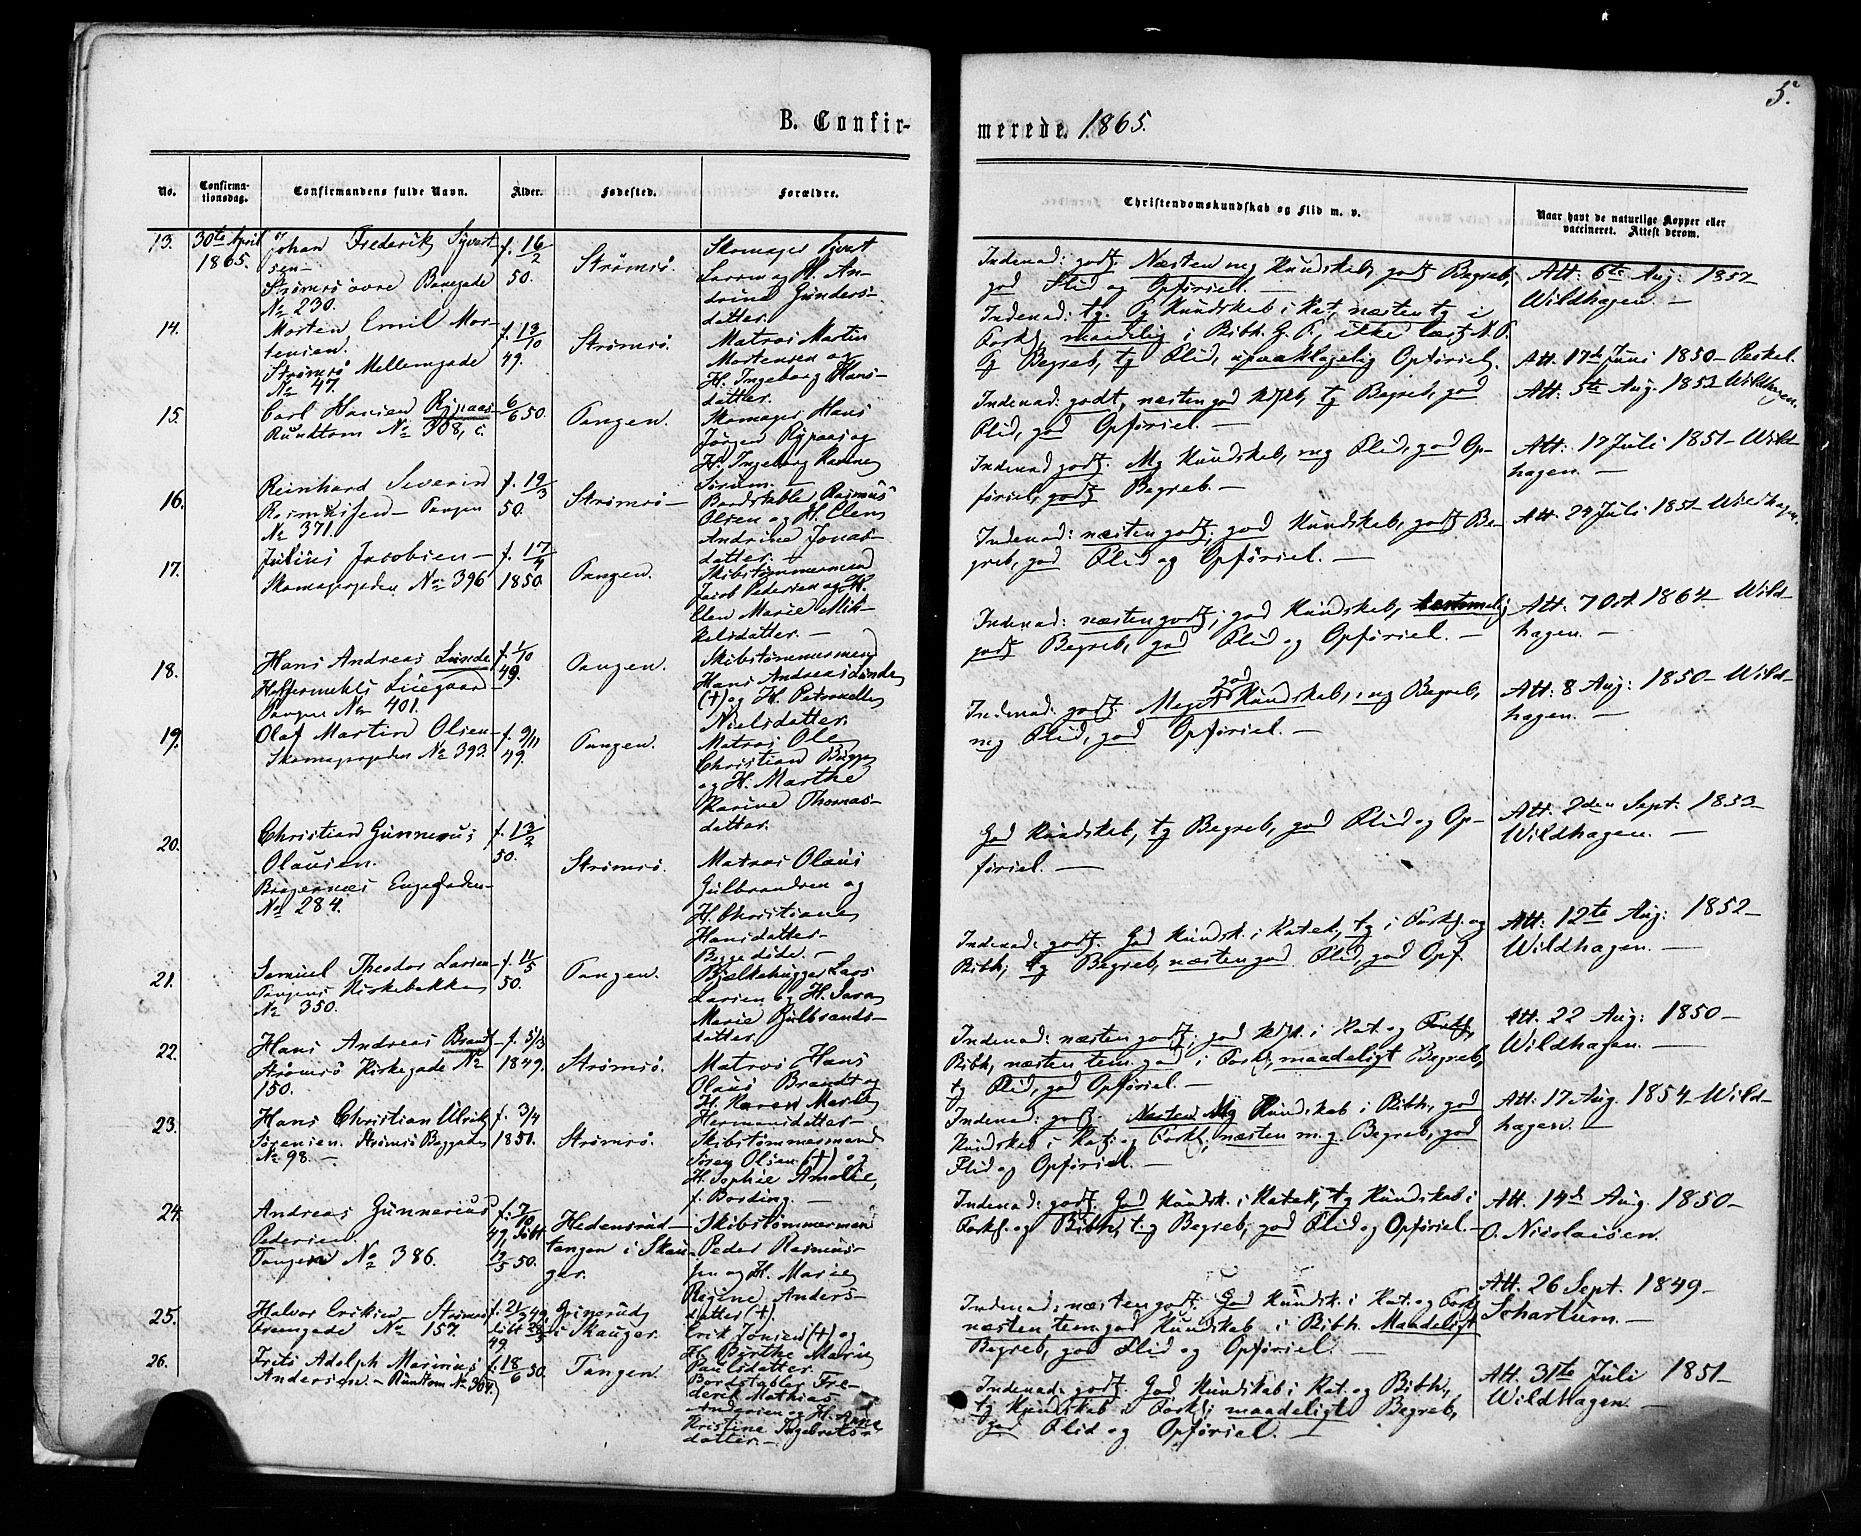 5.
B. Confir-
merede. 1865.
No.
Confirma-
tionsdag.
Confirmandens fulde Navn.
Alder.
Fødested.
Forældre.
Christendomskundskab og Flid m. v.
Naar havt de naturlige Kopper eller
vaccineret. Attest derom.
13.
30te April
1865.
Johan Frederik Syvert-
sen
Strømsø øvre
No 230.
f. 16/2
50.
Strømsø.
Skomager Syvert
Larsen og H. An-
drine Gunders-
datter.
Indenad: godt. Næsten mg Kundskab, godt Begreb,
god Flid og Opførsel. —
Att: 6te Aug: 1857
Wildhagen. —
14.
Morten Emil Mor-
tensen.
Strømsø Mellemgade
No 47.
f. 13/10
49.
Strømsø.
Matros Martin
Mortensen og
H. Ingeborg Hans-
datter.
Indenad: tg. Tg Kundskab i Kat, næsten tg i
Forkl, maadelig i Bibh. G. T. ikke læst N. T.
Tg Begreb, tg Flid, upaaklagelig Opførsel.
Att. 17de Juni 1850 —
15.
Carl Hansen Rypaas
Rundtom No 308, c.
6/6 50.
Tangen.
Skomager Hans
Jørgen Rypaas og
H. Ingeborg Karine
Indenad: godt, næsten god Kdsk, tg Begreb, god
Flid, god Opførsel. —
Att. 5te Aug. 1853 Wildhagen.
16.
Reinhard Severin
Rasmussen — Tangen
No 371.
f. 19/3
50.
Strømsø —
Bordstabler Rasmus
Olsen og H. Elen
Andrine Jonas-
datter. —
Indenad godt. Mg Kundskab, mg Flid, god Op-
førsel, godt Begreb. —
Att. 17 Juli 1851 — Wild-
hagen. —
17.
Julius Jacobsen —
Skomagergaden No 396
f. 17/4
1850.
Tangen.
Skibstømmermand
Jacob Pedersen og H.
Elen Marie Mik-
kelsdatter. —
Indenad: næsten godt; god Kundskab, godt Be-
greb, god Flid og Opførsel. —
Att. 24 Juli 1851 Wildhagen.
18.
Hans Andreas Lunde
Tangen No 401.
f. 1/10
49.
Tangen.
Skibstømmermand
Hans Andreas Lunde
(†) og H. Petronelle
Nielsdatter.
Indenad: næsten godt; god Kundskab,
godt Begreb, god Flid og Opførsel. —
Att. 7 Oct. 1864 — Wild-
hagen. —
19.
Olaf Martin Olsen —
Skomagergaden No 393.
f. 9/11
49.
Tangen.
Matros Ole
Christian Bigge
og H. Marthe
Karine Thomas-
datter.
Indenad: godt. Meget god Kundskab, mg Begreb,
mg Flid, god Opførsel. —
Att: 8 Aug: 1850 — Wild-
hagen. —
20.
Christian Gunnerus
Olausen.
Bragernæs Engegaden
No 284.
f. 13/2
50.
Strømsø.
Matros Olaus
Gulbrandsen og
H. Christiane
Hansdatter —
Begge døde. —
God Kundskab, tg Begreb, god Flid og Op-
førsel. —
Att. 2den Sept: 1853 —
Wildhagen. —
21.
Samuel Theodor Larsen —
Tangens Kirkebakke
No 350.
f. 11/5
50.
Tangen.
Bjelkehugger Lars
Larsen og H. Sara
Marie Gulbrands-
datter —
Indenad: godt. God Kundsk. i Katek, tg i Forkl. og
Bibh; tg Begreb, næsten god Flid, god Opf.
Att: 12te Aug: 1852 —
Wildhagen. —
22.
Hans Andreas Brandt —
Strømsø Kirkegade No
150.
f. 5/3
1849.
Strømsø.
Matros Hans
Olaus Brandt og
H. Karen Marie
Hermansdatter —
Indenad: næsten godt, god Kdsk. i Kat. og
Bibh, næsten tem. god i Forkl, maadeligt Begreb,
tg Flid, god Opførsel. —
Att. 22 Aug: 1850 —
Wildhagen. —
23.
Hans Christian Ulrik
Sørensen. Strømsø
No 98. —
f. 3/4
1851.
Strømsø.
Skibstømmermand
Søren Olsen (†) og
H. Sophie Amalie,
f. Bording. —
Indenad: godt. Næsten Mg Kundskab i Bibh, god
Kundskab i Kat. og Forkl, næsten m.g. Begreb, god
Flid og Opførsel. —
Att. 17 Aug. 1854 — Wild-
hagen. —
24.
Andreas Gunnerius
Pedersen.
Tangen No 386.
f. 7/10
49, døbt
12/5 50.
Hedensrud-
tangen i Skau-
ger.
Skibstømmermand
Peder Rasmus-
sen og H. Marie
Regine Anders-
datter (†).
Indenad: godt. God Kundsk. i Katek, tg Kundskab i
Forkl. og Bibh, tg Begreb, god Flid og Opførsel. —
Att. 14de Aug. 1850 —
O. Nicolaisen.
25.
Halvor Eriksen — Strømsø
No 157.
49
Grinerud
i Skauger.
Erik Jonsen (†) og
H. Birthe Marie
Paulsdatter.
Indenad: næsten godt. God Kundsk. i Kat. og Forkl,
næsten tem. god Kundskab i Bibh. Maadeligt
Begreb, god Flid og Opførsel.
Att. 26 Sept. 1849 —
Schartum. —
26.
Frits Adolph Marinius
Andersen. — Rundtom No 304.
f. 18/6 50.
Tangen.
Bordstabler Fre-
derik Mathias
Andersen og H. Anne
Kristine Ingebrets-
datter. —
Indenad: godt. God Kundskab i Kat. og Bibh,
tg Kundskab i Forkl; maadeligt Begreb,
god Flid og Opførsel. —
Att. 31te Juli 1851 —
Wildhagen. —